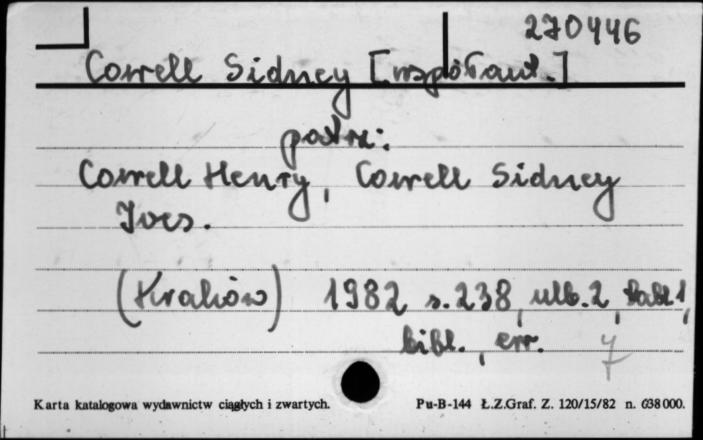 270446
Cowell Sidney [współaut.]
patrz:
Cowell Henry, Cowell Sidney
Ives.
(Kraków) 1982 s. 238, nlb. 2, tabl. 1,
bibl., err.
Karta katalogowa wydawnictw ciągłych i zwartych. Pu-B-144 Ł.Z.Graf. Z. 120/15/82 n. 638000.